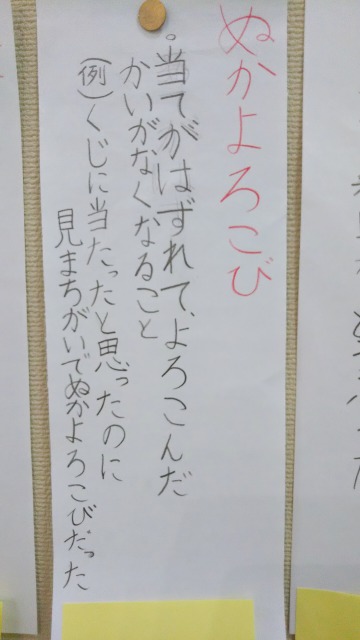 ぬかよろこび
。当てがはずれて、よろこんだ
かいがなくなること
(例)くじに当たったと思ったのに
見まちがいでぬかよろこびだった